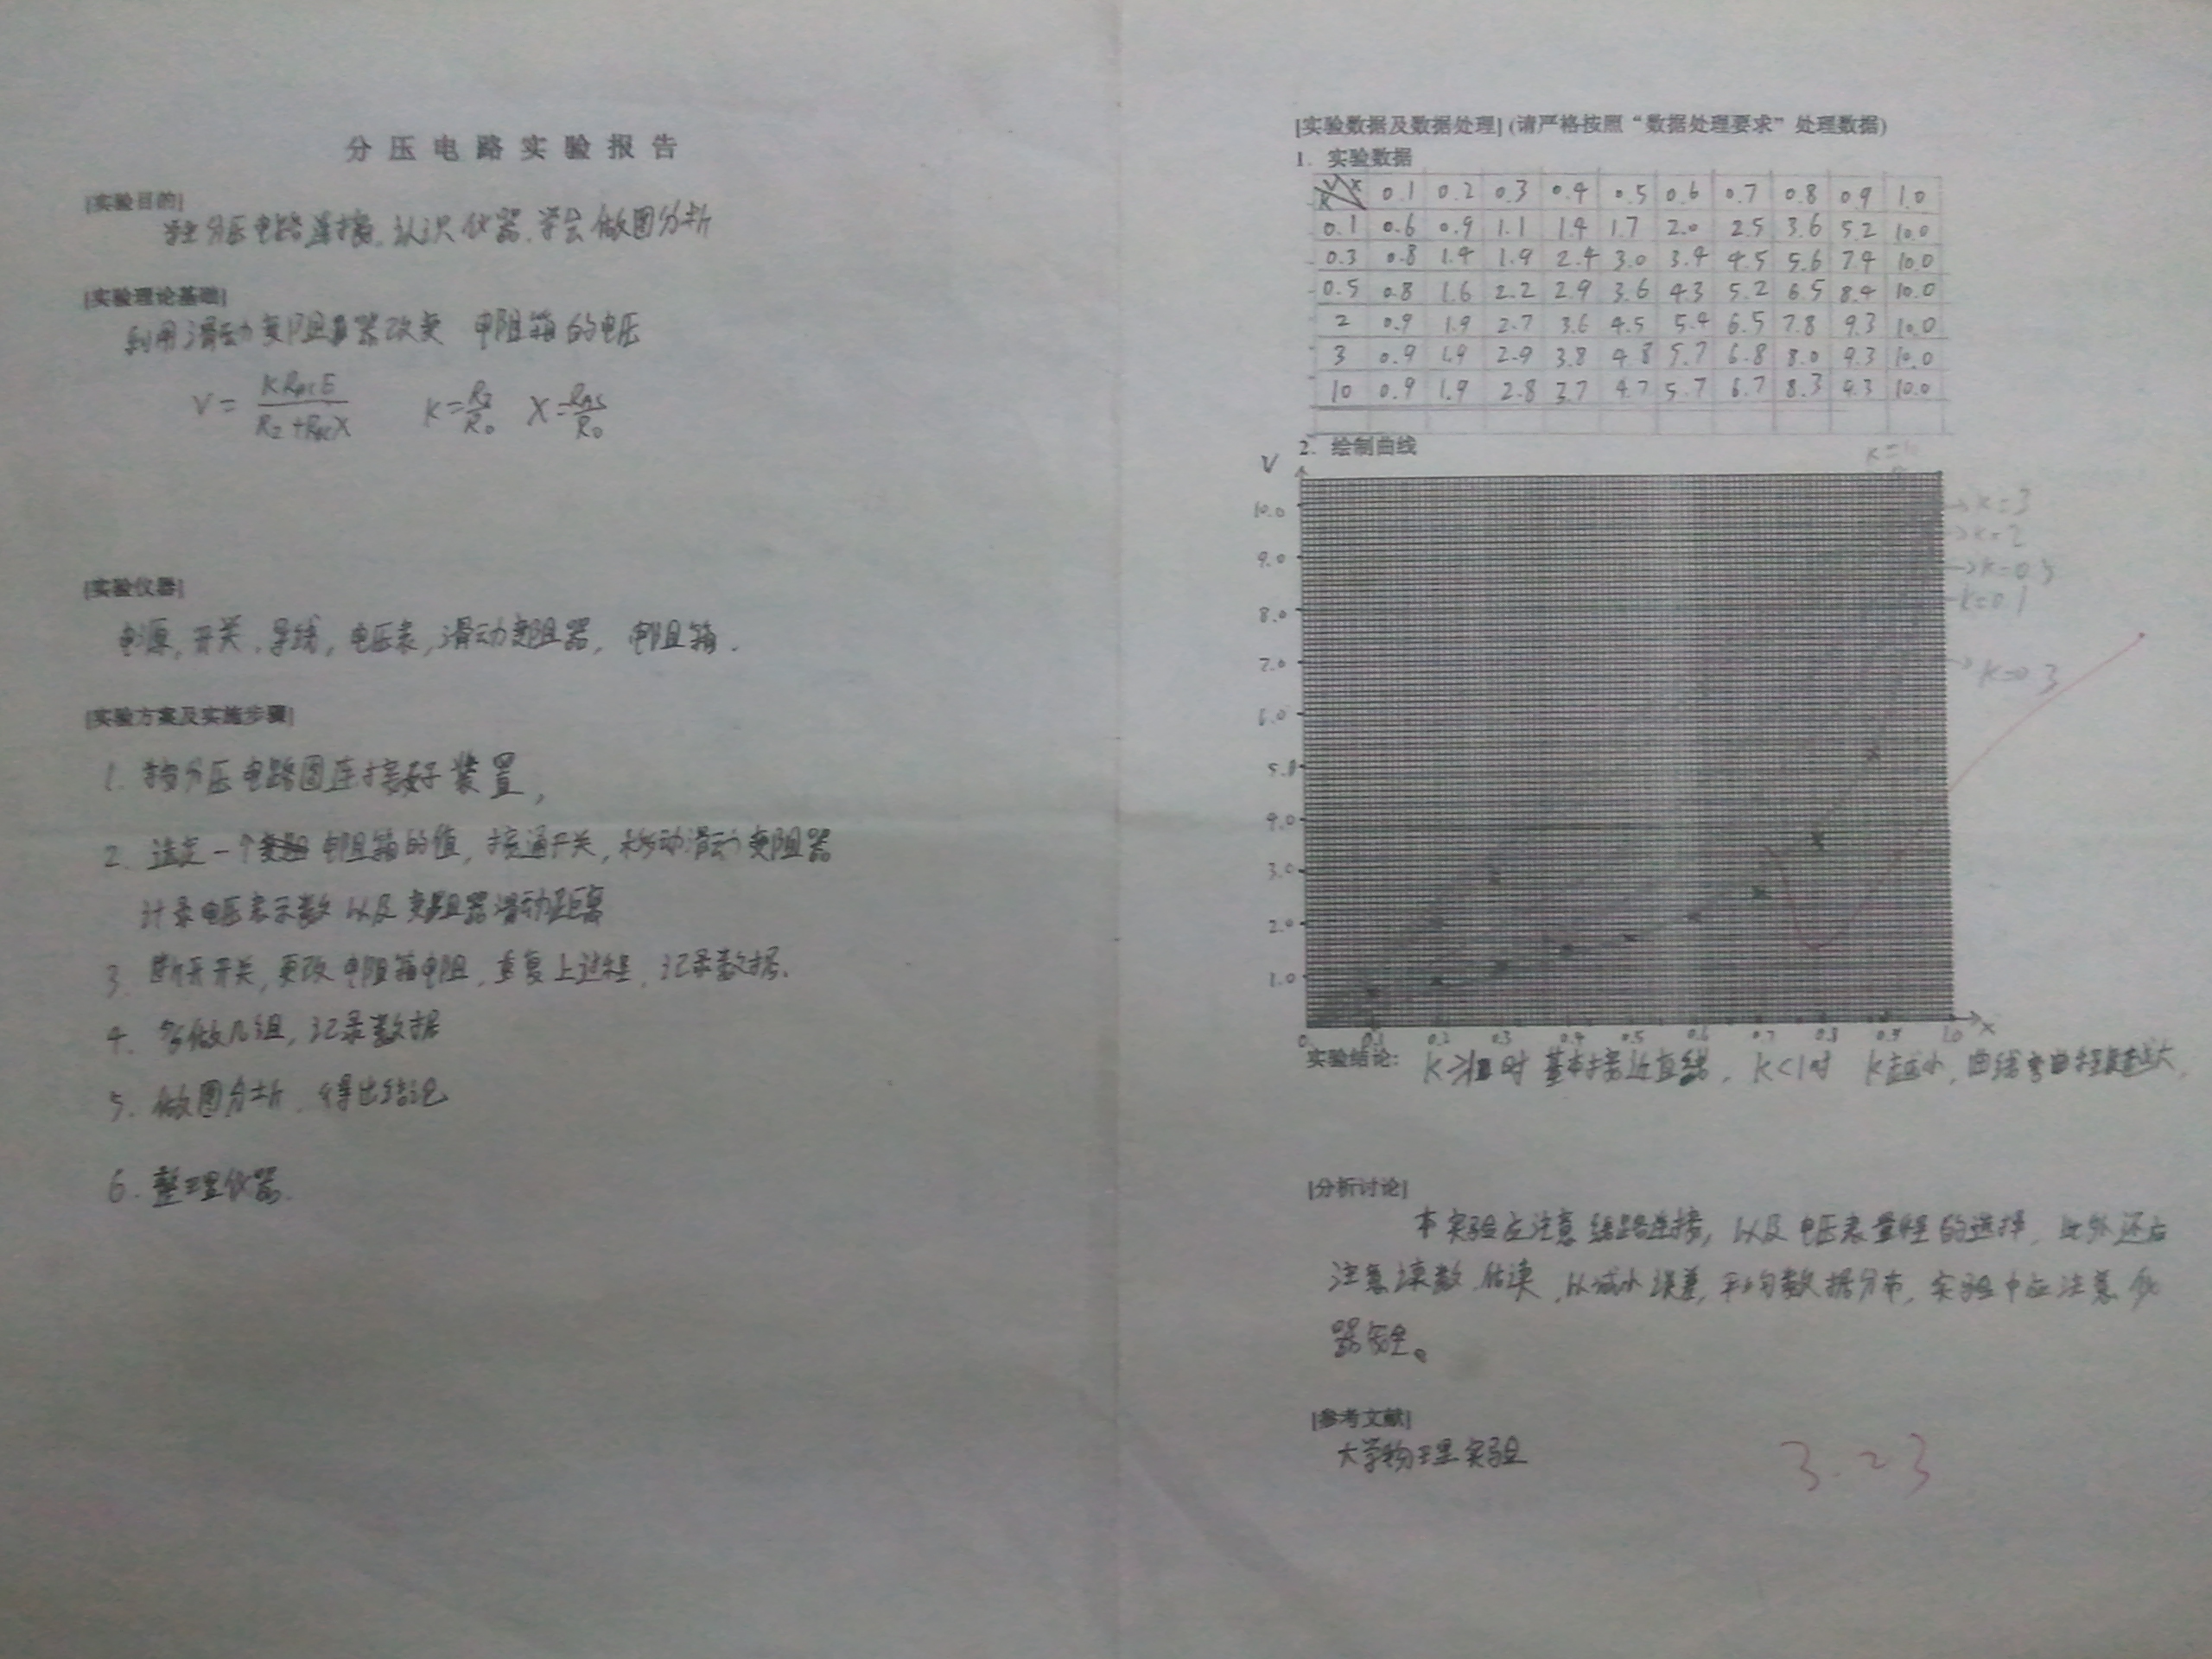 分压电路实验报告
[实验目的]
分压电路连接,认识仪器,学会做图分析
[实验理论基础]
利用滑动变阻器改变 电阻箱的电压
V = KR_{AC}E / R_Z+R_{AC}X K=R_Z/R_0 X=R_{AC}/R_0
[实验仪器]
电源,开关,导线,电压表,滑动变阻器,电阻箱.
[实验方案及实施步骤]
1. 按分压电路图连接好装置,
2. 选定一个电阻箱的值,接通开关,移动滑动变阻器
计录电压表示数以及变阻器滑动距离
3. 断开开关,更改电阻箱电阻,重复上过程,记录数据.
4. 多做几组,记录数据
5. 做图分析,得出结论
6. 整理仪器.
[实验数据及数据处理] (请严格按照“数据处理要求”处理数据)
1. 实验数据
V X K 0.1 0.2 0.3 0.4 0.5 0.6 0.7 0.8 0.9 1.0
0.1 0.6 0.9 1.1 1.4 1.7 2.0 2.5 3.6 5.2 10.0
0.3 0.8 1.4 1.9 2.4 3.0 3.4 4.5 5.6 7.4 10.0
0.5 0.8 1.6 2.2 2.9 3.6 4.3 5.2 6.5 8.4 10.0
2 0.9 1.9 2.7 3.6 4.5 5.4 6.5 7.8 9.3 10.0
3 0.9 1.9 2.9 3.8 4.8 5.7 6.8 8.0 9.3 10.0
10 0.9 1.9 2.8 3.7 4.7 5.7 6.7 8.3 9.3 10.0
2. 绘制曲线
V
10.0
K=3
K=2
9.0
K=0.5
K=0.1
8.0
7.0
K=0.3
6.0
5.0
4.0
3.0
2.0
1.0
0 0.1 0.2 0.3 0.4 0.5 0.6 0.7 0.8 0.9 1.0 X
实验结论: 时 基本接近直线, K<1时 K越小,曲线弯曲程度越大,
[分析讨论]
本实验应注意线路连接,以及电压表量程的选择,此外还应
注意读数,估读,以减小误差,平均数据分布,实验中应注意仪
器安全。
[参考文献]
大学物理实验
3.23